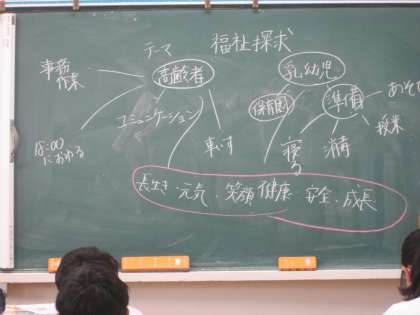 テマ 福祉探求
事務
作業
高齢者
乳幼児
保育園
準備
コミュニケーション
車いす
寝る
授業
におわる
長生き・元気・笑顔 健康・安全・成長